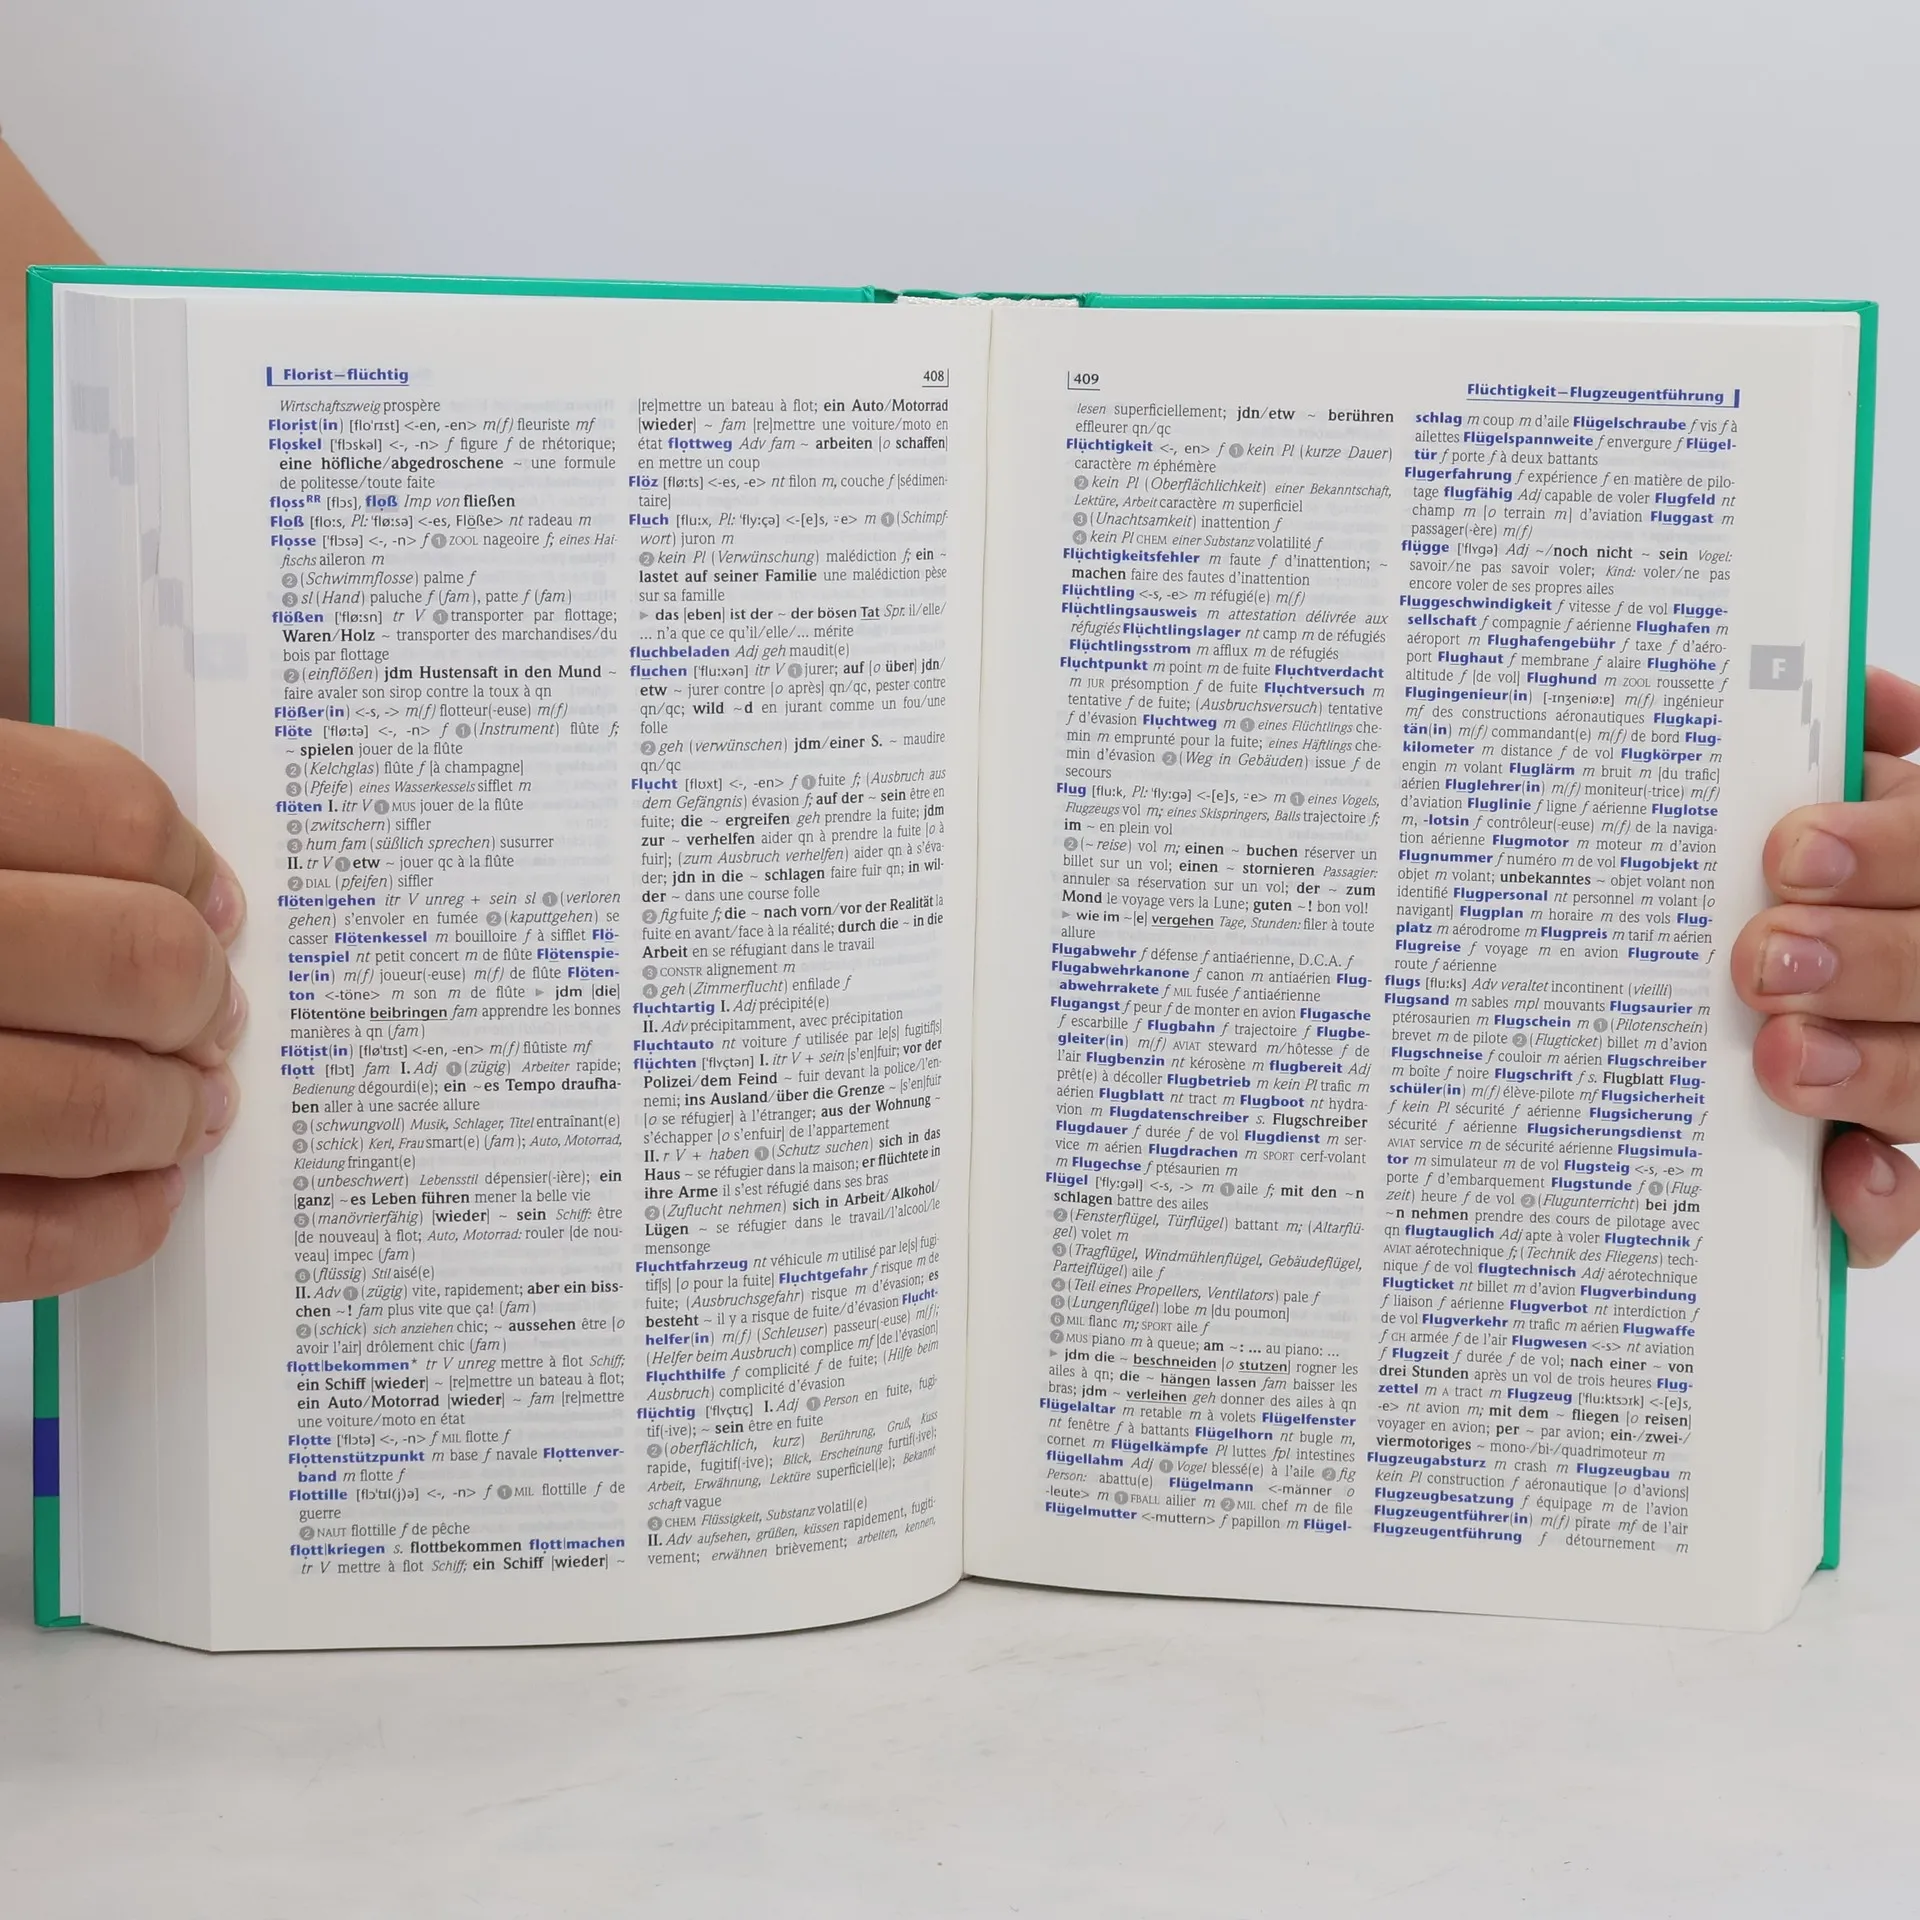 Florist–flüchtig
408
Wirtschaftszweig prospère
Florist(in) [flo'rɪst] <-en, -en> m(f) fleuriste mf
Floskel ['flɔskəl] <-, -n> f figure f de rhétorique;
eine höfliche/abgedroschene ~ une formule
de politesse/toute faite
flossRR [flɔs], floß Imp von fließen
Floß [flo:s, Pl: 'flø:sə] <-es, Flöße> nt radeau m
Flosse ['flɔsə] <-, -n> f ❶ ZOOL nageoire f; eines Hai-
fischs aileron m
❷ (Schwimmflosse) palme f
❸ sl (Hand) paluche f (fam), patte f (fam)
flößen ['flø:sn] tr V ❶ transporter par flottage;
Waren/Holz ~ transporter des marchandises/du
bois par flottage
❷ (einflößen) jdm Hustensaft in den Mund ~
faire avaler son sirop contre la toux à qn
Flößer(in) <-s, -> m(f) flotteur(-euse) m(f)
Flöte ['flø:tə] <-, -n> f ❶ (Instrument) flûte f;
~ spielen jouer de la flûte
❷ (Kelchglas) flûte f [à champagne]
❸ (Pfeife) eines Wasserkessels sifflet m
flöten I. itr V ❶ MUS jouer de la flûte
❷ (zwitschern) siffler
❸ hum fam (süßlich sprechen) susurrer
II. tr V ❶ etw ~ jouer qc à la flûte
❷ DIAL (pfeifen) siffler
flöten|gehen itr V unreg + sein sl ❶ (verloren
gehen) s'envoler en fumée ❷ (kaputtgehen) se
casser Flötenkessel m bouilloire f à sifflet Flö-
tenspiel nt petit concert m de flûte Flötenspie-
ler(in) m(f) joueur(-euse) m(f) de flûte Flöten-
ton <-töne> m son m de flûte ▸ jdm [die]
Flötentöne beibringen fam apprendre les bonnes
manières à qn (fam)
Flötist(in) [flø'tɪst] <-en, -en> m(f) flûtiste mf
flott [flɔt] fam I. Adj ❶ (zügig) Arbeiter rapide;
Bedienung dégourdi(e); ein ~es Tempo draufha-
ben aller à une sacrée allure
❷ (schwungvoll) Musik, Schlager, Titel entraînant(e)
❸ (schick) Kerl, Frau smart(e) (fam); Auto, Motorrad,
Kleidung fringant(e)
❹ (unbeschwert) Lebensstil dépensier(-ière); ein
[ganz] ~es Leben führen mener la belle vie
❺ (manövrierfähig) [wieder] ~ sein Schiff: être
[de nouveau] à flot; Auto, Motorrad: rouler [de nou-
veau] impec (fam)
❻ (flüssig) Stil aisé(e)
II. Adv ❶ (zügig) vite, rapidement; aber ein biss-
chen ~! fam plus vite que ça! (fam)
❷ (schick) sich anziehen chic; ~ aussehen être [o
avoir l'air] drôlement chic (fam)
flott|bekommen* tr V unreg mettre à flot Schiff;
ein Schiff [wieder] ~ [re]mettre un bateau à flot;
ein Auto/Motorrad [wieder] ~ fam [re]mettre
une voiture/moto en état
Flotte ['flɔtə] <-, -n> f MIL flotte f
Flottenstützpunkt m base f navale Flottenver-
band m flotte f
Flottille [flɔ'tɪl(j)ə] <-, -n> f ❶ MIL flottille f de
guerre
❷ NAUT flottille f de pêche
flott|kriegen s. flottbekommen flott|machen
tr V mettre à flot Schiff; ein Schiff [wieder] ~
[re]mettre un bateau à flot; ein Auto/Motorrad
[wieder] ~ fam [re]mettre une voiture/moto en
état flottweg Adv fam ~ arbeiten [o schaffen]
en mettre un coup
Flöz [flø:ts] <-es, -e> nt filon m, couche f [sédimen-
taire]
Fluch [flu:x, Pl: 'fly:çə] <-[e]s, ⸚e> m ❶ (Schimpf-
wort) juron m
❷ kein Pl (Verwünschung) malédiction f; ein ~
lastet auf seiner Familie une malédiction pèse
sur sa famille
▸ das [eben] ist der ~ der bösen Tat Spr. il/elle/
... n'a que ce qu'il/elle/... mérite
fluchbeladen Adj geh maudit(e)
fluchen ['flu:xən] itr V ❶ jurer; auf [o über] jdn/
etw ~ jurer contre [o après] qn/qc, pester contre
qn/qc; wild ~d en jurant comme un fou/une
folle
❷ geh (verwünschen) jdm/einer S. ~ maudire
qn/qc
Flucht [flʊxt] <-, -en> f ❶ fuite f; (Ausbruch aus
dem Gefängnis) évasion f; auf der ~ sein être en
fuite; die ~ ergreifen geh prendre la fuite; jdm
zur ~ verhelfen aider qn à prendre la fuite [o à
fuir]; (zum Ausbruch verhelfen) aider qn à s'éva-
der; jdn in die ~ schlagen faire fuir qn; in wil-
der ~ dans une course folle
❷ fig fuite f; die ~ nach vorn/vor der Realität la
fuite en avant/face à la réalité; durch die ~ in die
Arbeit en se réfugiant dans le travail
❸ CONSTR alignement m
❹ geh (Zimmerflucht) enfilade f
fluchtartig I. Adj précipité(e)
II. Adv précipitamment, avec précipitation
Fluchtauto nt voiture f utilisée par le[s] fugitif[s]
flüchten ['flʏçtən] I. itr V + sein [s'en]fuir; vor der
Polizei/dem Feind ~ fuir devant la police/l'en-
nemi; ins Ausland/über die Grenze ~ [s'en]fuir
[o se réfugier] à l'étranger; aus der Wohnung ~
s'échapper [o s'enfuir] de l'appartement
II. r V + haben ❶ (Schutz suchen) sich in das
Haus ~ se réfugier dans la maison; er flüchtete in
ihre Arme il s'est réfugié dans ses bras
❷ (Zuflucht nehmen) sich in Arbeit/Alkohol/
Lügen ~ se réfugier dans le travail/l'alcool/le
mensonge
Fluchtfahrzeug nt véhicule m utilisé par le[s] fugi-
tif[s] [o pour la fuite] Fluchtgefahr f risque m de
fuite; (Ausbruchsgefahr) risque m d'évasion; es
besteht ~ il y a risque de fuite/d'évasion Flucht-
helfer(in) m(f) (Schleuser) passeur(-euse) m(f);
(Helfer beim Ausbruch) complice mf [de l'évasion]
Fluchthilfe f complicité f de fuite; (Hilfe beim
Ausbruch) complicité d'évasion
flüchtig ['flʏçtɪç] I. Adj ❶ Person en fuite, fugi-
tif(-ive); ~ sein être en fuite
❷ (oberflächlich, kurz) Berührung, Gruß, Kuss
rapide, fugitif(-ive); Blick, Erscheinung furtif(-ive);
Arbeit, Erwähnung, Lektüre superficiel(le); Bekannt
schaft vague
❸ CHEM Flüssigkeit, Substanz volatil(e)
II. Adv aufsehen, grüßen, küssen rapidement, fugiti-
vement; erwähnen brièvement; arbeiten, kennen,
409
Flüchtigkeit–Flugzeugentführung
lesen superficiellement; jdn/etw ~ berühren
effleurer qn/qc
Flüchtigkeit <-, en> f ❶ kein Pl (kurze Dauer)
caractère m éphémère
❷ kein Pl (Oberflächlichkeit) einer Bekanntschaft,
Lektüre, Arbeit caractère m superficiel
❸ (Unachtsamkeit) inattention f
❹ kein Pl CHEM einer Substanz volatilité f
Flüchtigkeitsfehler m faute f d'inattention; ~
machen faire des fautes d'inattention
Flüchtling <-s, -e> m réfugié(e) m(f)
Flüchtlingsausweis m attestation délivrée aux
réfugiés Flüchtlingslager nt camp m de réfugiés
Flüchtlingsstrom m afflux m de réfugiés
Fluchtpunkt m point m de fuite Fluchtverdacht
m JUR présomption f de fuite Fluchtversuch m
tentative f de fuite; (Ausbruchsversuch) tentative
f d'évasion Fluchtweg m ❶ eines Flüchtlings che-
min m emprunté pour la fuite; eines Häftlings che-
min m d'évasion ❷ (Weg in Gebäuden) issue f de
secours
Flug [flu:k, Pl: 'fly:gə] <-[e]s, ⸚e> m ❶ eines Vogels,
Flugzeugs vol m; eines Skispringers, Balls trajectoire f;
im ~ en plein vol
❷ (~reise) vol m; einen ~ buchen réserver un
billet sur un vol; einen ~ stornieren Passagier:
annuler sa réservation sur un vol; der ~ zum
Mond le voyage vers la Lune; guten ~! bon vol!
▸ wie im ~[e] vergehen Tage, Stunden: filer à toute
allure
Flugabwehr f défense f antiaérienne, D.C.A. f
Flugabwehrkanone f canon m antiaérien Flug-
abwehrrakete f MIL fusée f antiaérienne
Flugangst f peur f de monter en avion Flugasche
f escarbille f Flugbahn f trajectoire f Flugbe-
gleiter(in) m(f) AVIAT steward m/hôtesse f de
l'air Flugbenzin nt kérosène m flugbereit Adj
prêt(e) à décoller Flugbetrieb m kein Pl trafic m
aérien Flugblatt nt tract m Flugboot nt hydra-
vion m Flugdatenschreiber s. Flugschreiber
Flugdauer f durée f de vol Flugdienst m ser-
vice m aérien Flugdrachen m SPORT cerf-volant
m Flugechse f ptésaurien m
Flügel ['fly:gəl] <-s, -> m ❶ aile f; mit den ~n
schlagen battre des ailes
❷ (Fensterflügel, Türflügel) battant m; (Altarflü-
gel) volet m
❸ (Tragflügel, Windmühlenflügel, Gebäudeflügel,
Parteiflügel) aile f
❹ (Teil eines Propellers, Ventilators) pale f
❺ (Lungenflügel) lobe m [du poumon]
❻ MIL flanc m; SPORT aile f
❼ MUS piano m à queue; am ~: ... au piano: ...
▸ jdm die ~ beschneiden [o stutzen] rogner les
ailes à qn; die ~ hängen lassen fam baisser les
bras; jdm ~ verleihen geh donner des ailes à qn
Flügelaltar m retable m à volets Flügelfenster
nt fenêtre f à battants Flügelhorn nt bugle m,
cornet m Flügelkämpfe Pl luttes fpl intestines
flügellahm Adj ❶ Vogel blessé(e) à l'aile ❷ fig
Person: abattu(e) Flügelmann <-männer o
-leute> m ❶ FBALL ailier m ❷ MIL chef m de file
Flügelmutter <-muttern> f papillon m Flügel-
schlag m coup m d'aile Flügelschraube f vis f à
ailettes Flügelspannweite f envergure f Flügel-
tür f porte f à deux battants
Flugerfahrung f expérience f en matière de pilo-
tage flugfähig Adj capable de voler Flugfeld nt
champ m [o terrain m] d'aviation Fluggast m
passager(-ère) m(f)
flügge ['flʏgə] Adj ~/noch nicht ~ sein Vogel:
savoir/ne pas savoir voler; Kind: voler/ne pas
encore voler de ses propres ailes
Fluggeschwindigkeit f vitesse f de vol Flugge-
sellschaft f compagnie f aérienne Flughafen m
aéroport m Flughafengebühr f taxe f d'aéro-
port Flughaut f membrane f alaire Flughöhe f
altitude f [de vol] Flughund m ZOOL roussette f
Flugingenieur(in) [-ɪnʒeniø:ɐ] m(f) ingénieur
mf des constructions aéronautiques Flugkapi-
tän(in) m(f) commandant(e) m(f) de bord Flug-
kilometer m distance f de vol Flugkörper m
engin m volant Fluglärm m bruit m [du trafic]
aérien Fluglehrer(in) m(f) moniteur(-trice) m(f)
d'aviation Fluglinie f ligne f aérienne Fluglotse
m, -lotsin f contrôleur(-euse) m(f) de la naviga-
tion aérienne Flugmotor m moteur m d'avion
Flugnummer f numéro m de vol Flugobjekt nt
objet m volant; unbekanntes ~ objet volant non
identifié Flugpersonal nt personnel m volant [o
navigant] Flugplan m horaire m des vols Flug-
platz m aérodrome m Flugpreis m tarif m aérien
Flugreise f voyage m en avion Flugroute f
route f aérienne
flugs [flu:ks] Adv veraltet incontinent (vieilli)
Flugsand m sables mpl mouvants Flugsaurier m
ptérosaurien m Flugschein m ❶ (Pilotenschein)
brevet m de pilote ❷ (Flugticket) billet m d'avion
Flugschneise f couloir m aérien Flugschreiber
m boîte f noire Flugschrift f s. Flugblatt Flug-
schüler(in) m(f) élève-pilote mf Flugsicherheit
f kein Pl sécurité f aérienne Flugsicherung f
sécurité f aérienne Flugsicherungsdienst m
AVIAT service m de sécurité aérienne Flugsimula-
tor m simulateur m de vol Flugsteig <-s, -e> m
porte f d'embarquement Flugstunde f ❶ (Flug-
zeit) heure f de vol ❷ (Flugunterricht) bei jdm
~n nehmen prendre des cours de pilotage avec
qn flugtauglich Adj apte à voler Flugtechnik f
AVIAT aérotechnique f; (Technik des Fliegens) tech-
nique f de vol flugtechnisch Adj aérotechnique
Flugticket nt billet m d'avion Flugverbindung
f liaison f aérienne Flugverbot nt interdiction f
de vol Flugverkehr m trafic m aérien Flugwaffe
f CH armée f de l'air Flugwesen <-s> nt aviation
f Flugzeit f durée f de vol; nach einer ~ von
drei Stunden après un vol de trois heures Flug-
zettel m A tract m Flugzeug ['flu:ktsɔɪk] <-[e]s,
-e> nt avion m; mit dem ~ fliegen [o reisen]
voyager en avion; per ~ par avion; ein-/zwei-/
viermotoriges ~ mono-/bi-/quadrimoteur m
Flugzeugabsturz m crash m Flugzeugbau m
kein Pl construction f aéronautique [o d'avions]
Flugzeugbesatzung f équipage m de l'avion
Flugzeugentführer(in) m(f) pirate mf de l'air
Flugzeugentführung f détournement m
F